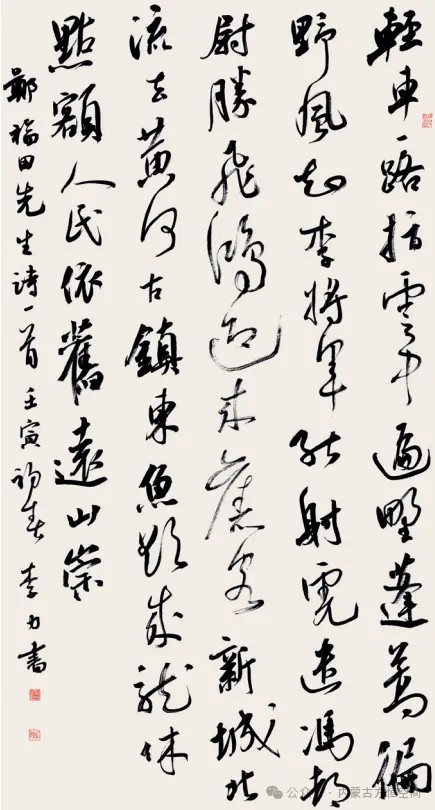 輕車一路指雲中遍野蓬蒿徧
野風起李將軍能射虎遣馮都
尉勝飛鴻迎來舊客新城北
流去黃河古鎮東魚欲成龍休
點額人民依舊遠山崇
鄭福田先生詩一首壬寅初春李力書
公众号 · 内蒙古